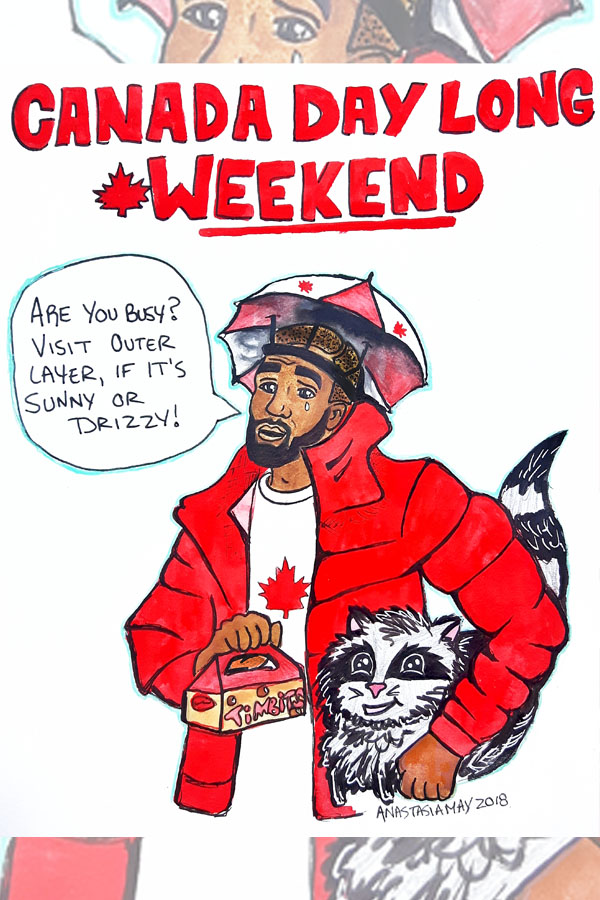 CANADA DAY LONG
WEEKEND
ARE YOU BUSY?
VISIT OUTER
LAYER, IF IT'S
SUNNY OR
DRIZZY!
TiMBiTS
ANASTASIA MAY 2018